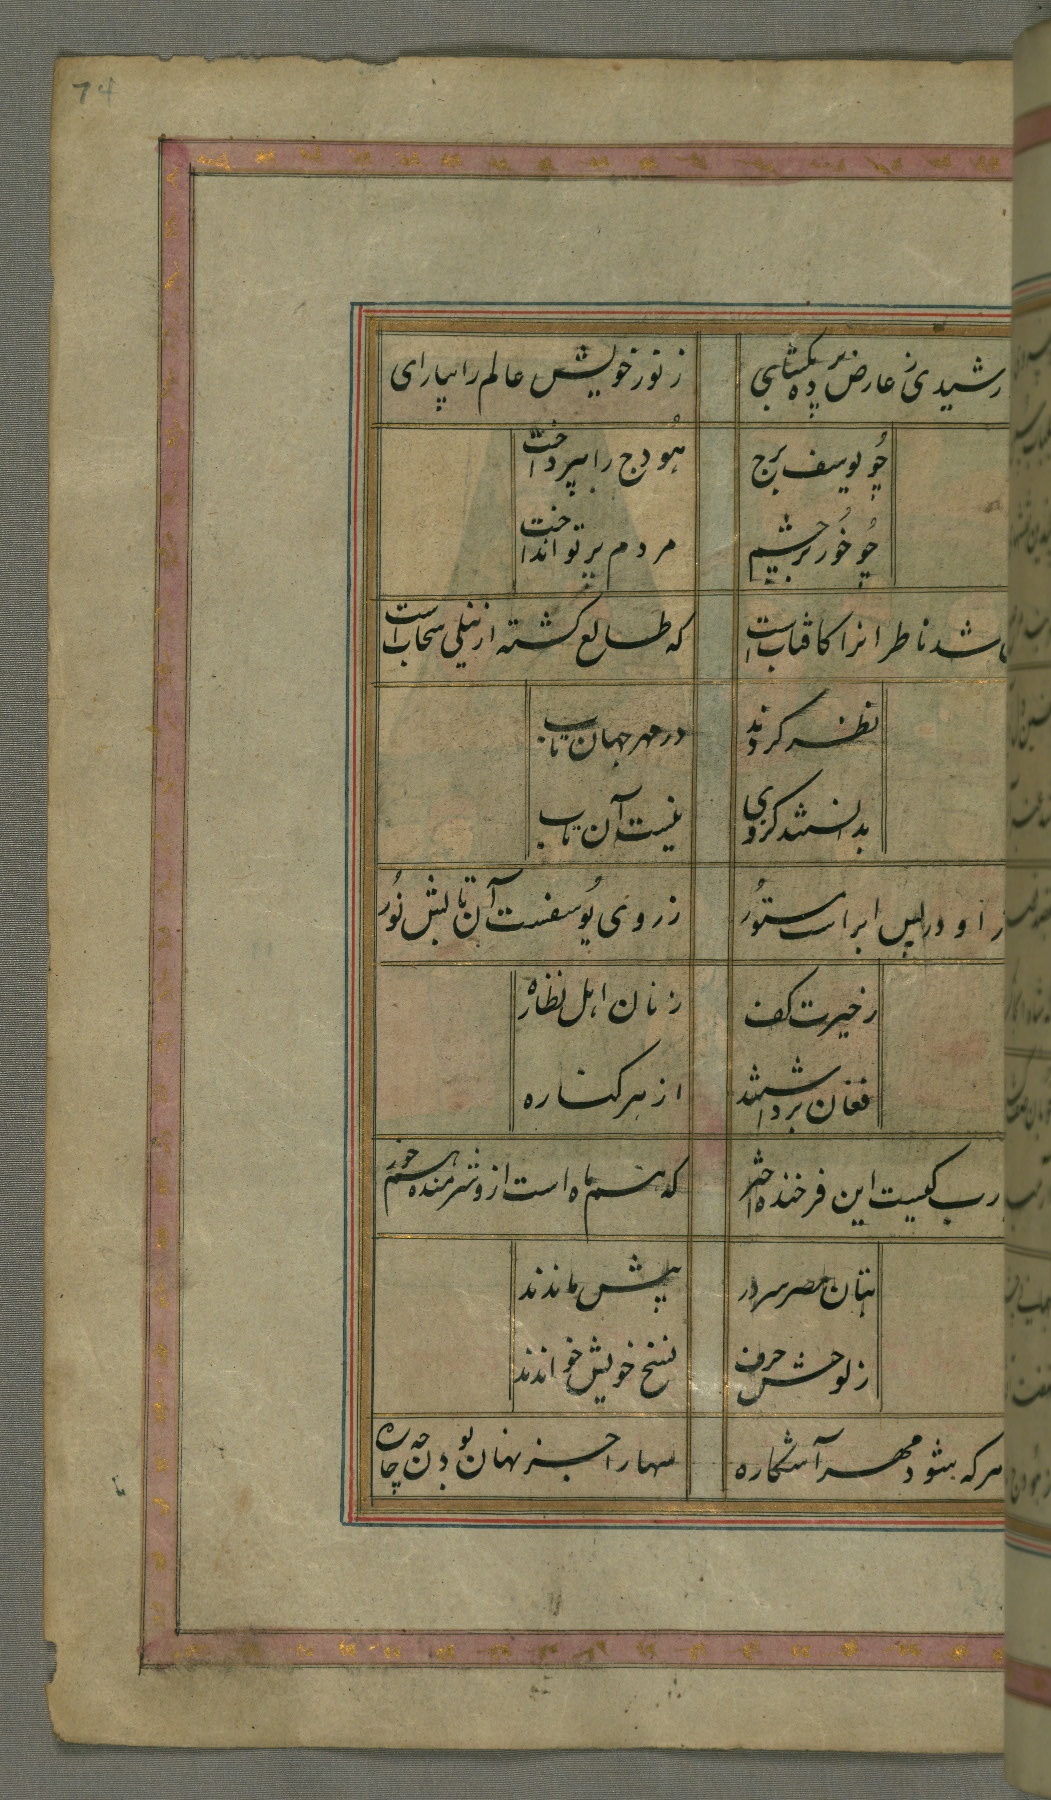 74
رشیدی ز عارض پرده بگشای ز نور خویش عالم را بیارای
چو یوسف برج هودج را بپرداخت
چو خور بر چشم مردم پرتو انداخت
شد ناظرانرا کافتاب است که طالع گشته از نیلی سحاب است
نظر کردند در مهر جهان تاب
بدانستند کز وی نیست آن تاب
ز او در پس ابر است مستور ز روی یوسفست آن تابش نور
ز حیرت کف زنان اهل نظاره
فغان برداشتند از هر کناره
رب کیست این فرخنده اختر که هم ماه است ازو شرمنده هم خور
بتان مصر سر در پیش ماندند
ز لوحش حرف نسخ خویش خواندند
هر که شود مهر آشکاره سها را جز نهان بودن چه چاره